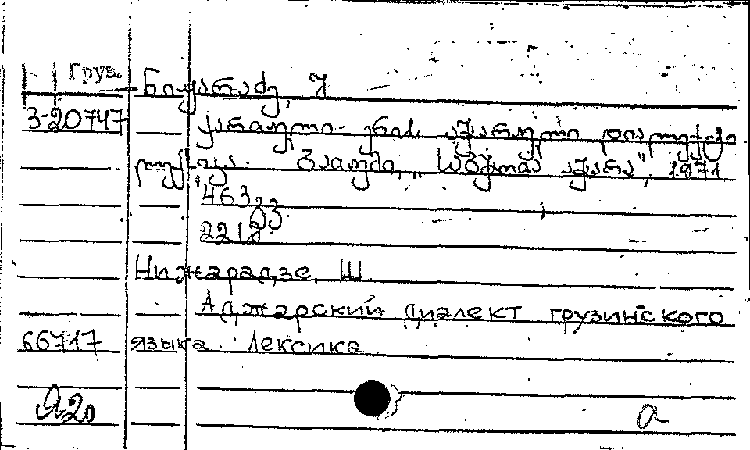 Груз.
ნიჟარაძე, შ
3-20747 ქართული ენის აჭარული დიალექტი
ლექსიკა. ბათუმი, „საბჭოთა აჭარა", 1971
463 გვ
221
Нижарадзе, Ш.
Аджарский диалект грузинского
66717 языка. Лексика
а